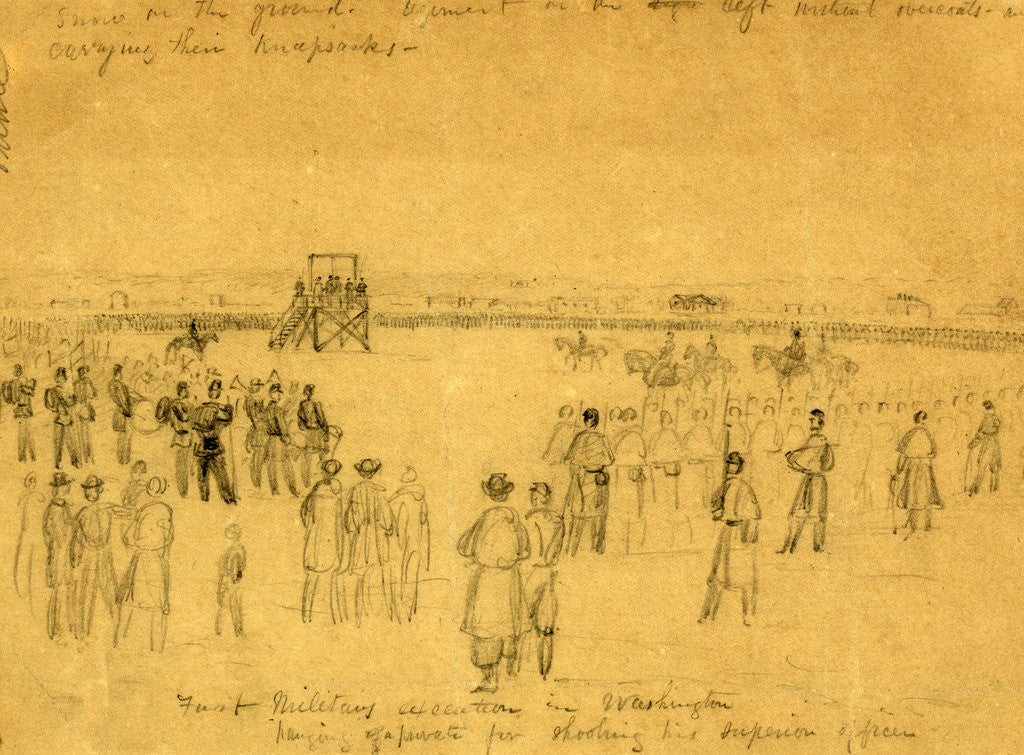 Snow on the ground. Regiment on the left without overcoats -
carrying their knapsacks -
First Military execution in Washington
hanging of a private for shooting his superior officer